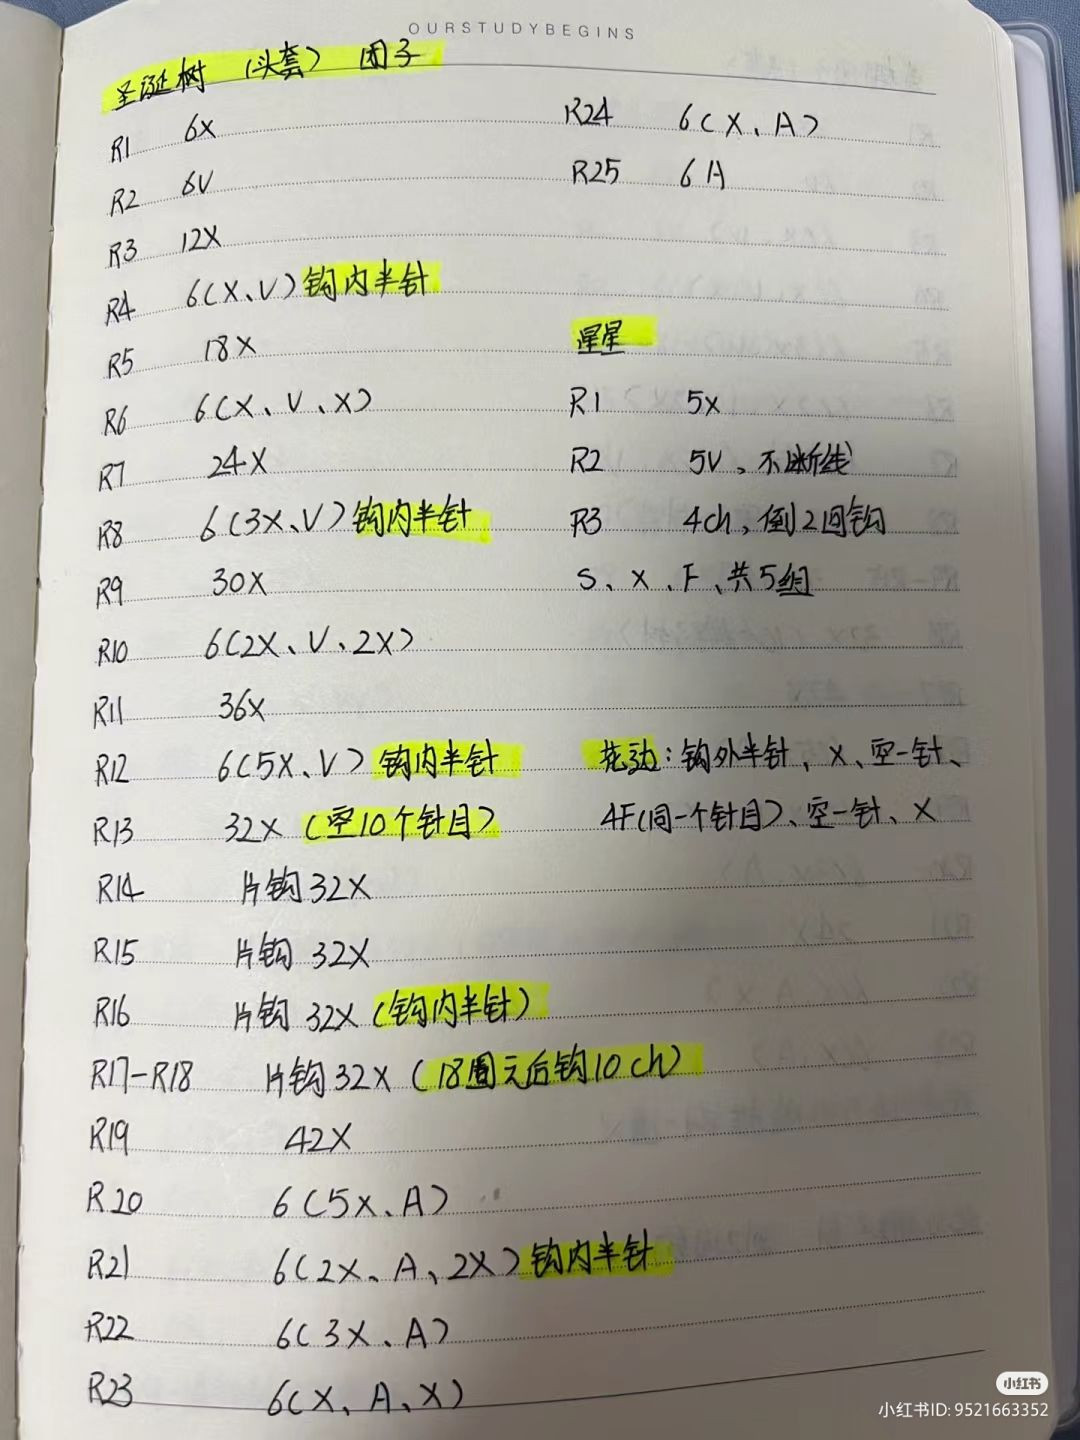 OURSTUDYBEGINS
圣诞树（头套） 团子
R1 6X
R2 6V
R3 12X
R4 6(X、V) 钩内半针
R5 18X
R6 6(X、V、X)
R7 24X
R8 6(3X、V) 钩内半针
R9 30X
R10 6(2X、V、2X)
R11 36X
R12 6(5X、V) 钩内半针
R13 32X (空10个针目)
R14 片钩 32X
R15 片钩 32X
R16 片钩 32X (钩内半针)
R17-R18 片钩 32X (18圈完后钩10ch)
R19 42X
R20 6(5X、A)
R21 6(2X、A、2X) 钩内半针
R22 6(3X、A)
R23 6(X、A、X)
R24 6(X、A)
R25 6A
星星
R1 5X
R2 5V、不断线
R3 4ch，倒2回钩
S、X、F、共5组
花边：钩外半针、X、空一针、
4F(同一个针目)、空一针、X
小红书
小红书ID: 9521663352